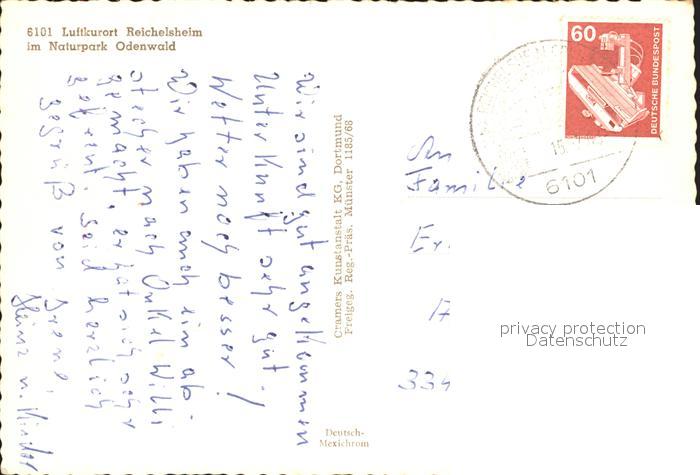 6101 Luftkurort Reichelsheim
im Naturpark Odenwald
Wir sind gut angekommen
Unterkunft sehr gut!
Wetter noch besser!
Wir haben auch ein ab-
stecher nach Onkel Willi
gemacht, er hat sich sehr
gefreut. Seid herzlich
gegrüß von Irene,
Heinz u. Kinder
Cramers Kunstanstalt KG, Dortmund
Freigeg. Reg.-Präs. Münster 1185/68
Deutsch-
Mexichrom
60
DEUTSCHE BUNDESPOST
15.
6101
An
Familie
Er.
A
334
privacy protection
Datenschutz